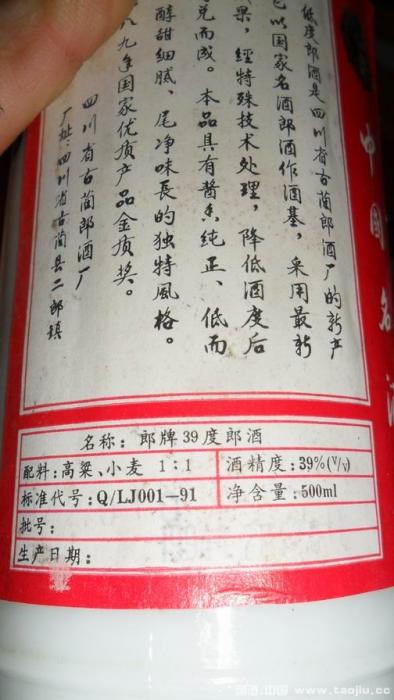 低度郎酒是四川省古蔺郎酒厂的新产
已以国家名酒郎酒作酒基，采用最新
果，经特殊技术处理，降低酒度后
兑而成。本品具有酱香纯正、低而
醇甜细腻、尾净味長的独特風格。
八九年国家优质产品金质奖。
四川省古蔺郎酒厂
厂址：四川省古蔺县二郎镇
中国名酒
名称：郎牌39度郎酒
配料：高粱、小麦 1：1
酒精度：39%(V/v)
标准代号：Q/LJ001—91
净含量：500ml
批号：
生产日期：
www.taojiu.cc